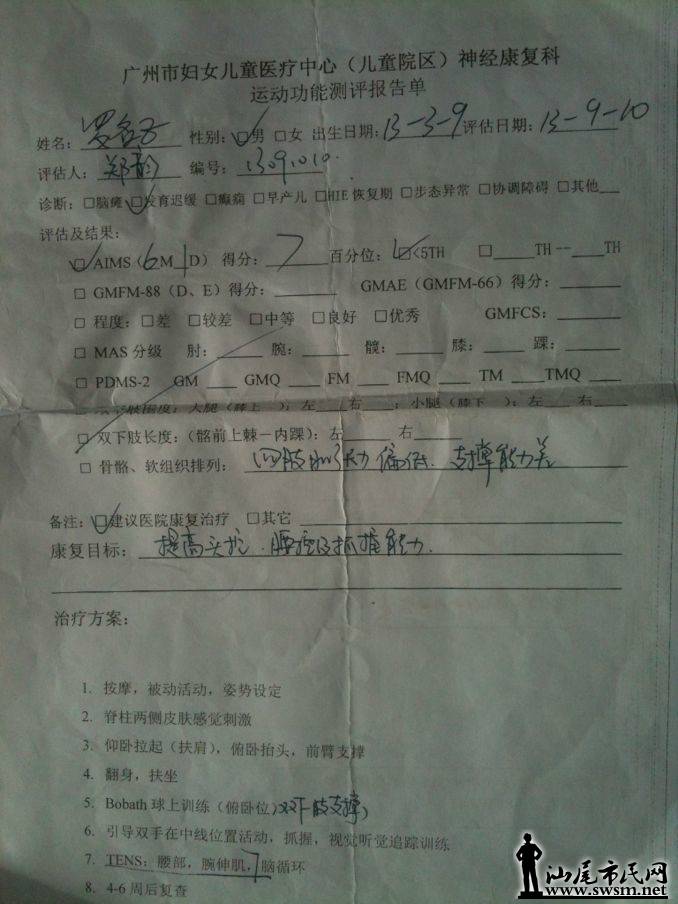 广州市妇女儿童医疗中心（儿童院区）神经康复科
运动功能测评报告单
姓名： 性别：□男 □女 出生日期：13-3-9 评估日期：13-9-10
评估人：郑韵 编号：13091010.
诊断：□脑瘫 □发育迟缓 □癫痫 □早产儿 □HIE 恢复期 □步态异常 □协调障碍 □其他___
评估及结果：
□ AIMS（6M 1D）得分：7 百分位：□<5TH □____TH --____TH
□ GMFM-88（D、E）得分：______ GMAE（GMFM-66）得分：______
□ 程度：□差 □较差 □中等 □良好 □优秀 GMFCS：____
□ MAS 分级 肘：____ 腕：____ 髋：____ 膝：____ 踝：____
□ PDMS-2 GM ___ GMQ ___ FM ___ FMQ ___ TM ___ TMQ ___
肢围度：大腿（膝上 ）：左__右__；小腿（膝下 ）：左__右__
□ 双下肢长度：（髂前上棘－内踝）：左______ 右____
□ 骨骼、软组织排列：四肢肌张力偏低. 支撑能力差
备注：□建议医院康复治疗 □其它
康复目标：提高头控. 腰控及抓握能力.
治疗方案：
1. 按摩，被动活动，姿势设定
2. 脊柱两侧皮肤感觉刺激
3. 仰卧拉起（扶肩），俯卧抬头，前臂支撑
4. 翻身，扶坐
5. Bobath 球上训练（俯卧位）双下肢支撑）
6. 引导双手在中线位置活动，抓握，视觉听觉追踪训练
7. TENS：腰部，腕伸肌，脑循环
8. 4-6 周后复查
汕尾市民网
www.swsm.net